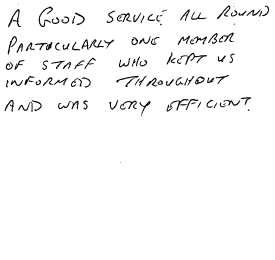 A GOOD SERVICE ALL ROUND
PARTUCULARLY ONE MEMBER
OF STAFF WHO KEPT US
INFORMED THROUGHOUT
AND WAS VERY EFFICIENT.